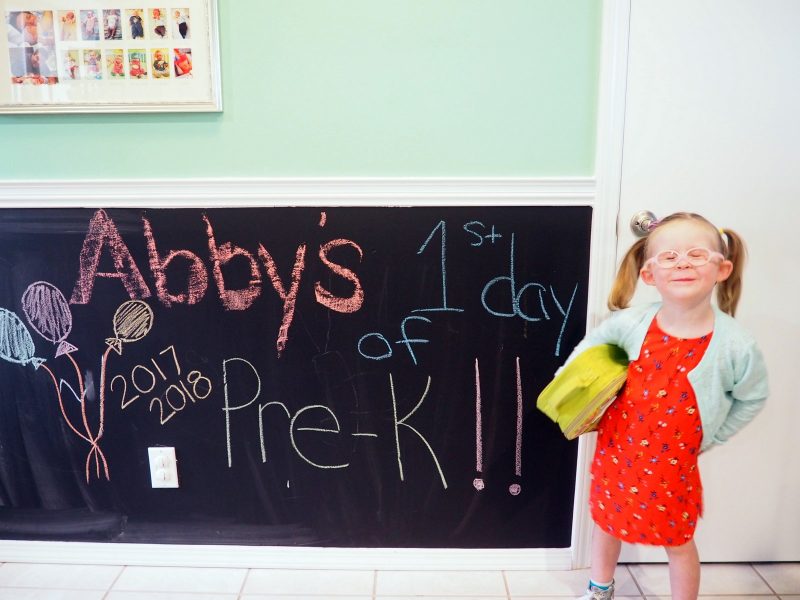 Abby's 1st day
of
2017
2018
Pre-K!!